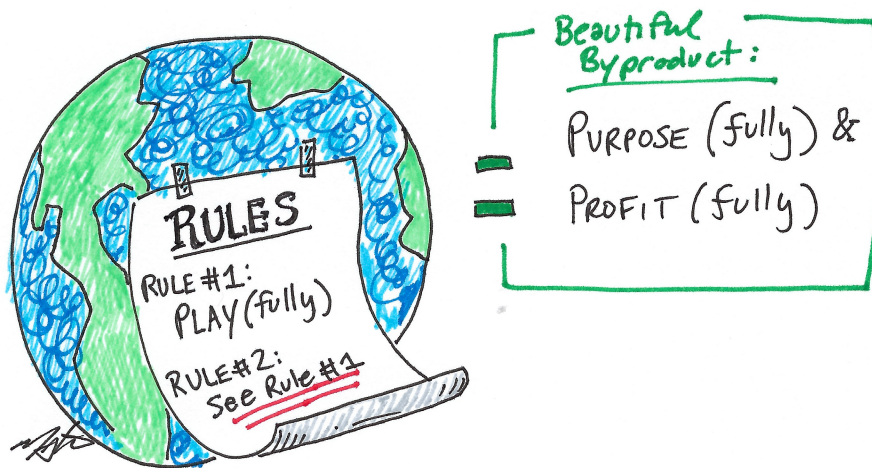 RULES
RULE #1:
PLAY (fully)
RULE #2:
See Rule #1
Beautiful
Byproduct:
=
PURPOSE (fully) &
PROFIT (fully)